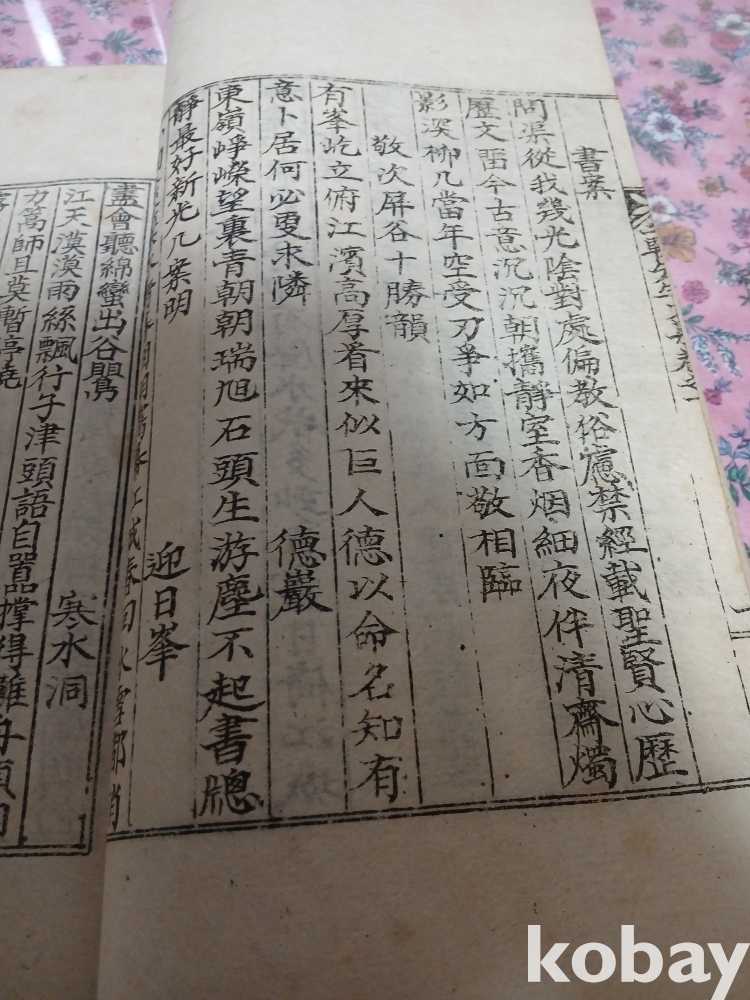 書案
問渠從我幾光陰對處偏教俗慮禁經載聖賢心歷
歷文畱今古意沉沉朝攜靜室香烟細夜伴清齋燭
影深柳几當年空受刀爭如方面敬相臨
敬次屏谷十勝韻
有峯屹立俯江濱高厚看來似巨人德以命名知有
意卜居何必更求隣 德巖
東嶺崢嶸望裏青朝朝瑞旭石頭生游塵不起書牕
靜最好新光几案明 迎日峯
盡會聽綿蠻出谷鸎 寒水洞
江天漠漠雨絲飄行子津頭語自囂撑得難舟須
力篙師且莫暫停橈
kobay